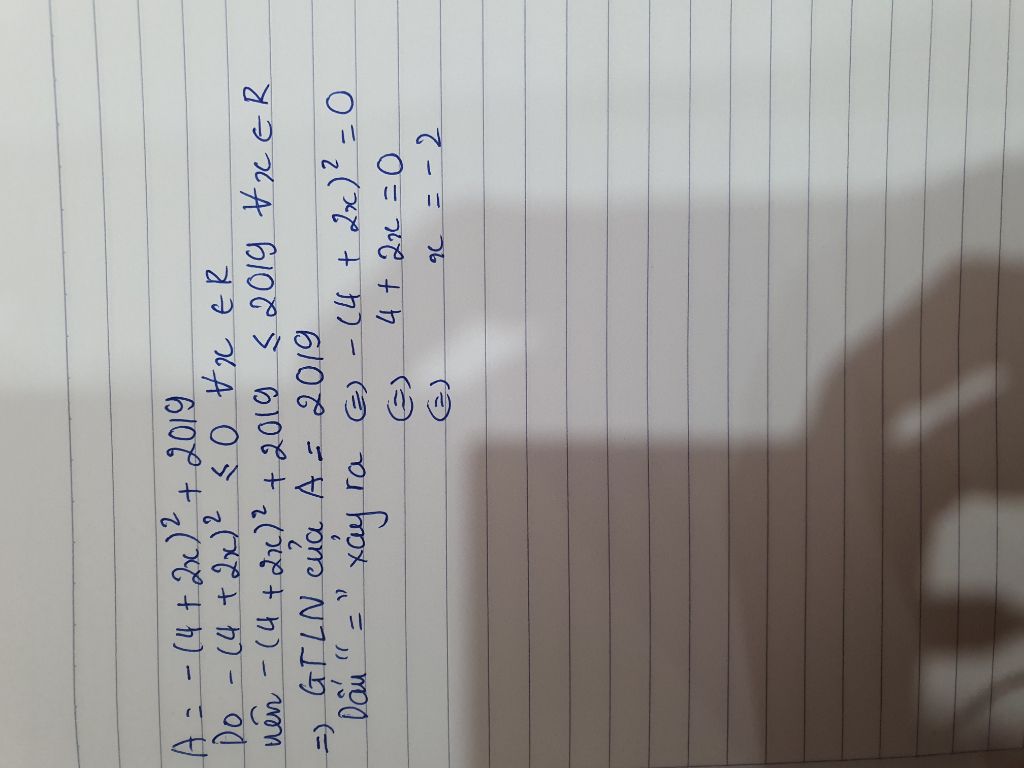 A = - (4 + 2x)² + 2019
Do - (4 + 2x)² ≤ 0 ∀x ∈ R
nên - (4 + 2x)² + 2019 ≤ 2019 ∀x ∈ R
=) GTLN của A = 2019
Dấu " = " xảy ra (=) - (4 + 2x)² = 0
(=) 4 + 2x = 0
(=) x = - 2